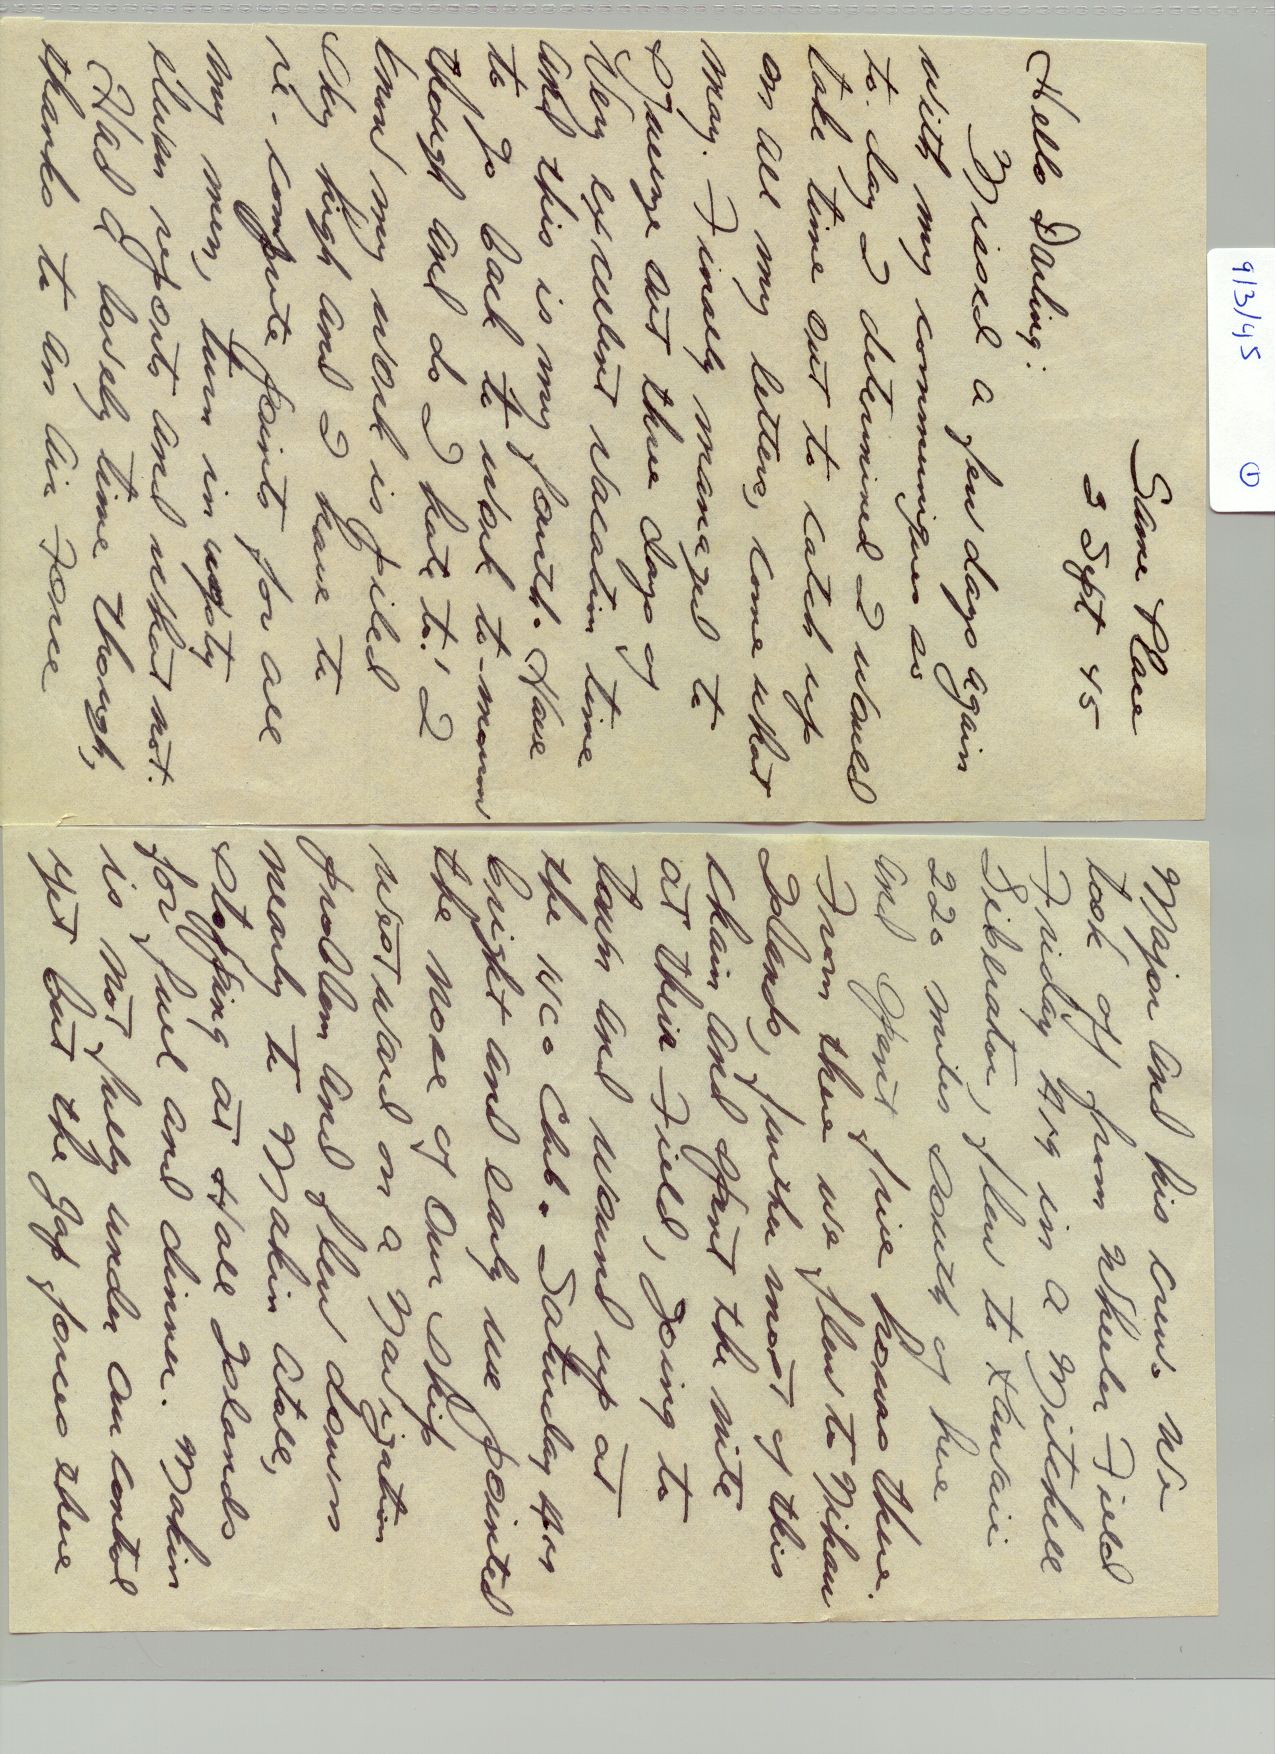 9/3/45 ①
Same Place
3 Sept 45
Hello Darling:
Missed a few days again
with my communiques so
to-day I determined I would
take time out to catch up
on all my letters, come what
may. Finally managed to
squeeze out three days of
very excellent vacation time
and this is my fourth. Have
to go back to work to-morrow
though and do I hate to! I
know my work is piled
sky high and I have to
re-compute points for all
my men, turn in
eleven reports and what not.
Had a lovely time though,
thanks to an Air Force
Major and his crew. We
took off from Wheeler Field
Friday in a Mitchell
flew to Hawaii
220 miles south of here
and spent five hours there.
From there we flew to
Islands, further most of this
chain and spent the nite
at their Field, going to
town and wound up at
the Club. Saturday
bright and early we pointed
the nose of our ship
westward on a navigation
problem and flew down
nearly to Makin atoll,
stopping at Hall Islands
for fuel and dinner. Makin
is not fully under our control
yet but the Jap forces there